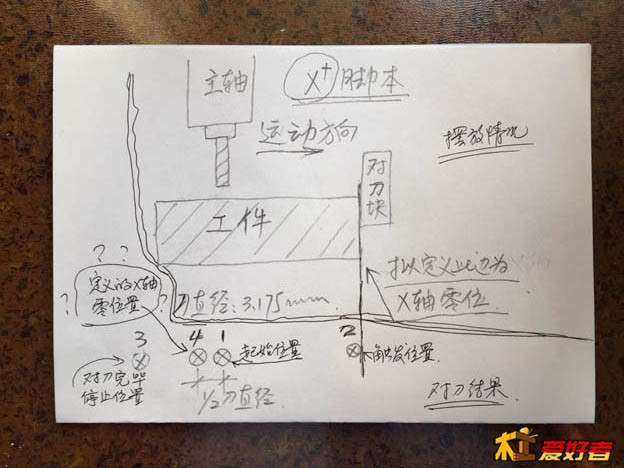 主轴
X+脚本
运动方向
摆放情况
对刀块
工件
? ?
定义的X轴
零位置
?
?
刀直径:3.175mm.
拟定义此边为
X轴零位.
3
4
1
2
起始位置
触发位置.
对刀完毕
停止位置
1/2刀直径.
对刀结果.
爱好者